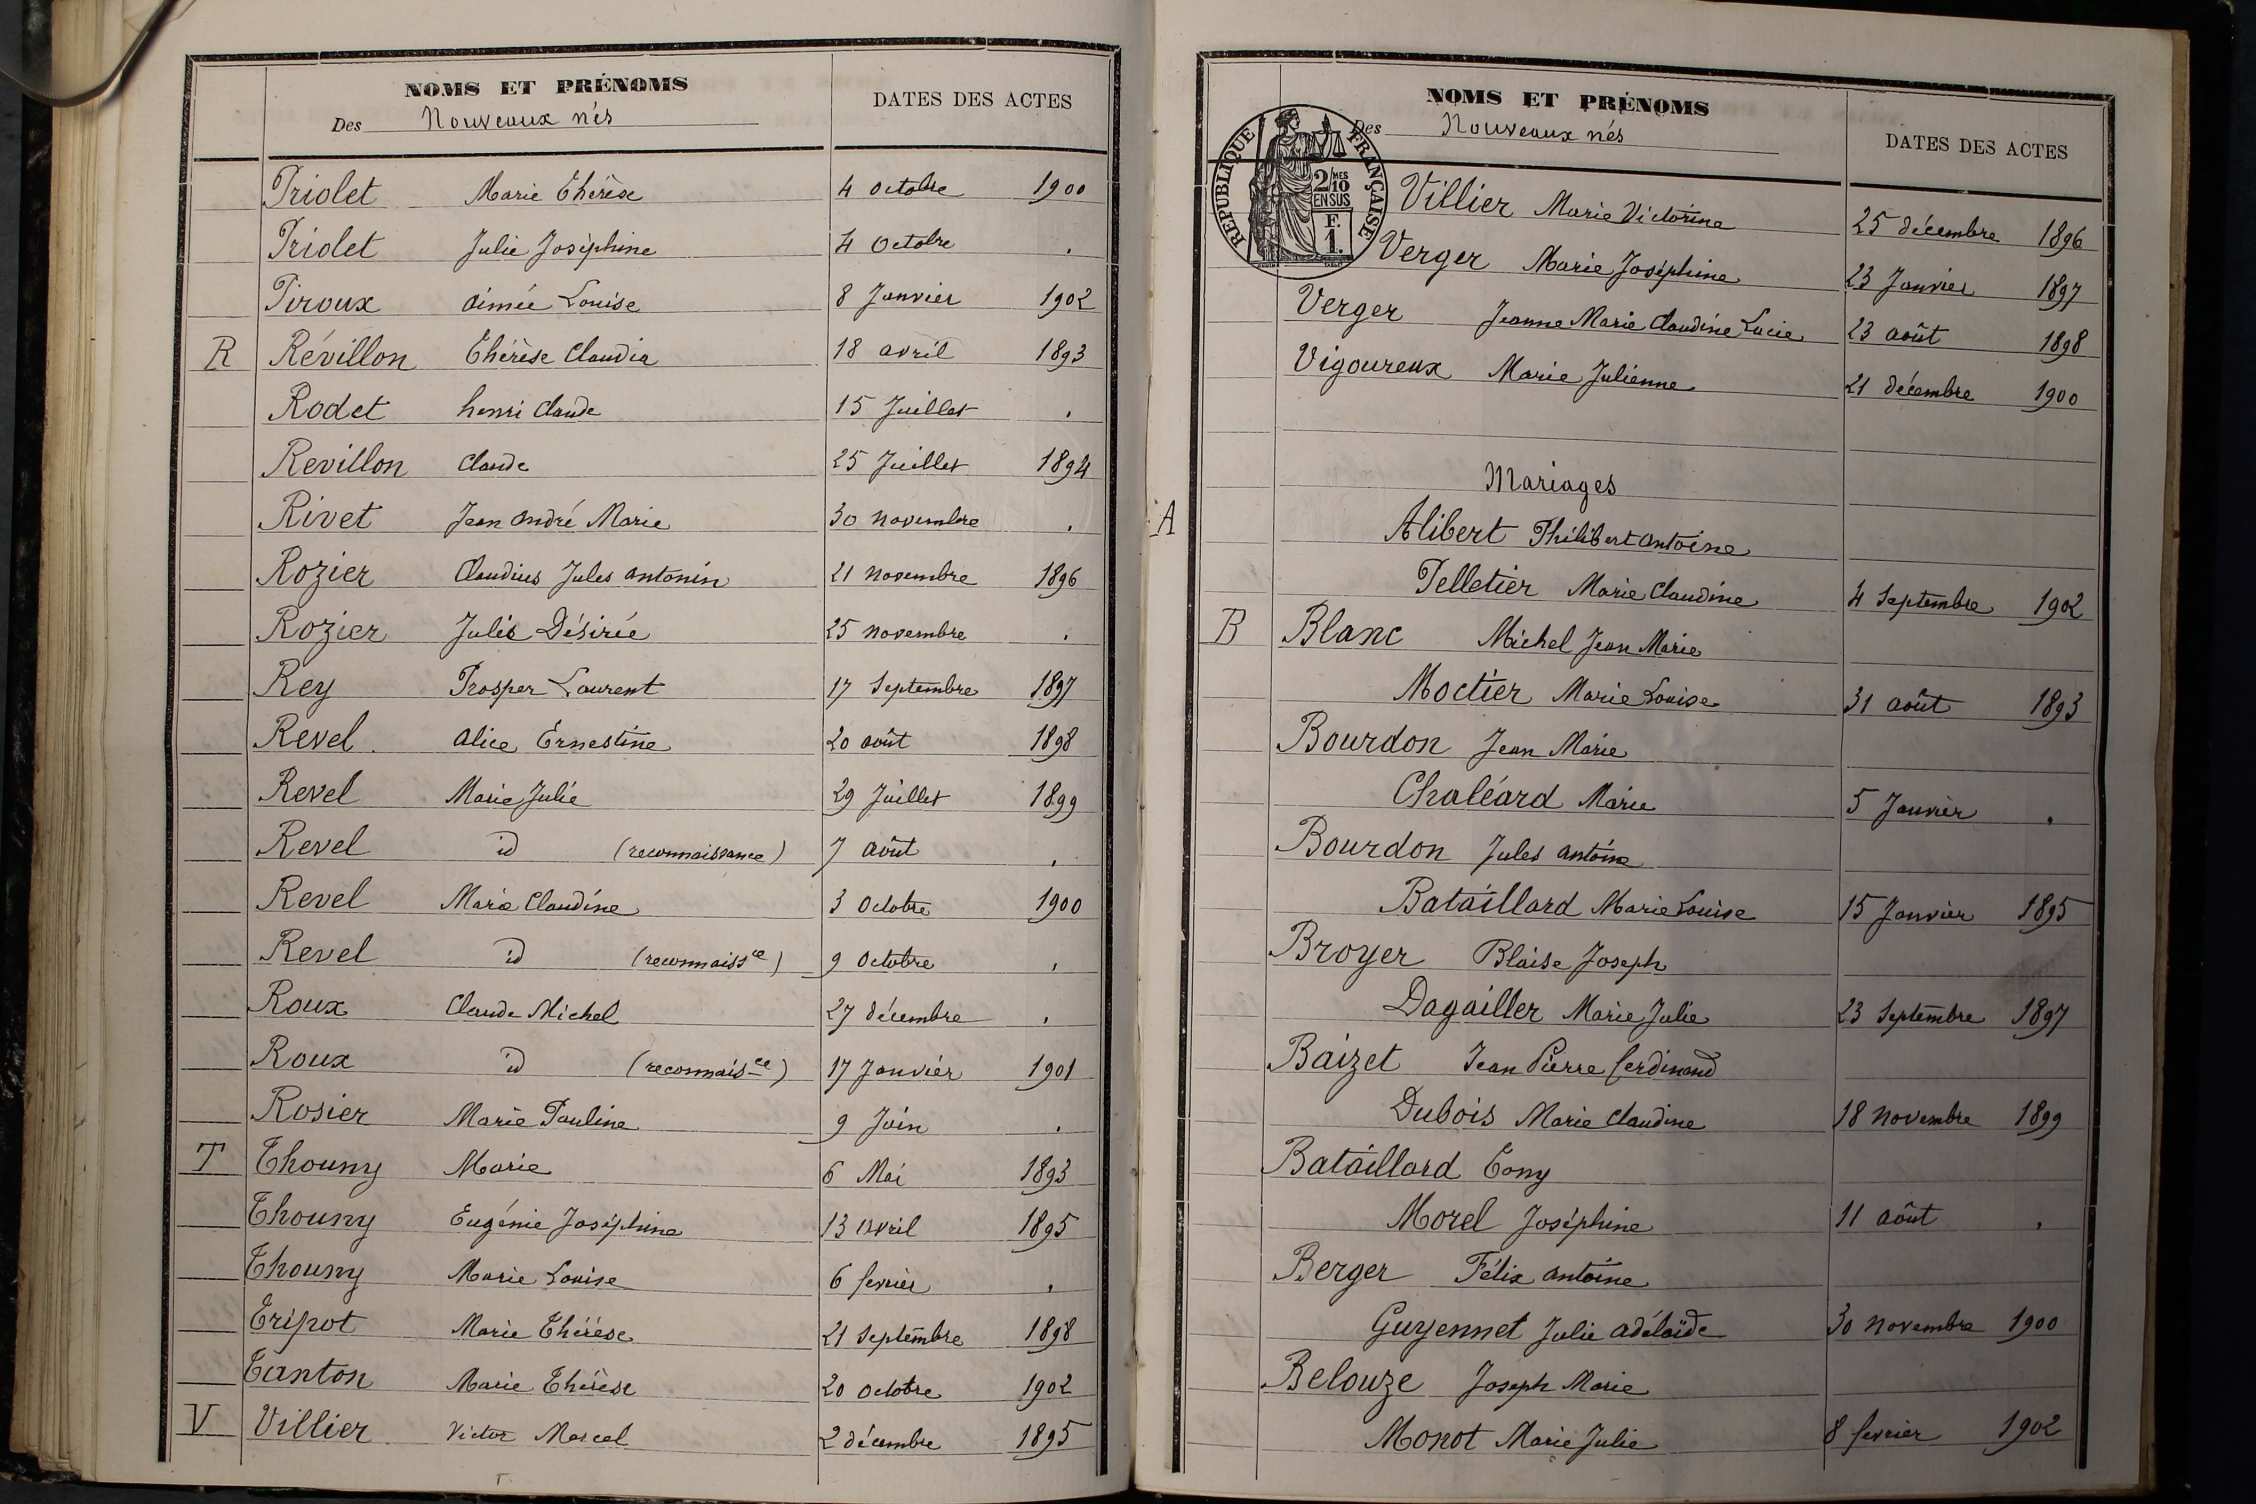 NOMS ET PRÉNOMS
Des Nouveaux nés
DATES DES ACTES
Priolet Marie Thérèse 4 octobre 1900
Priolet Julie Joséphine 4 Octobre .
Piroux aimée Louise 8 Janvier 1902
R Révillon Thérèse Claudia 18 avril 1893
Rodet henri Claude 15 Juillet .
Revillon Claude 25 Juillet 1894
Rivet Jean andré Marie 30 novembre .
Rozier Claudius Jules antonin 21 novembre 1896
Rozier Julie Désirée 25 novembre .
Rey Prosper Laurent 17 Septembre 1897
Revel alice Ernestine 20 août 1898
Revel Marie Julie 29 Juillet 1899
Revel id (reconnaissance) 7 août .
Revel Marie Claudine 3 Octobre 1900
Revel id (reconnaissce) 9 Octobre .
Roux Claude Michel 27 décembre .
Roux id (reconnaisce) 17 Janvier 1901
Rosier Marie Pauline 9 Juin .
T Thouny Marie 6 Mai 1893
Thouny Eugénie Joséphine 13 avril 1895
Thouny Marie Louise 6 fevrier .
Tripot Marie Thérèse 21 Septembre 1898
Tanton Marie Thérèse 20 octobre 1902
V Villier Victor Marcel 2 décembre 1895
NOMS ET PRÉNOMS
Des Nouveaux nés
DATES DES ACTES
RÉPUBLIQUE FRANÇAISE
2/10 MES
EN SUS
F.
1.
Villier Marie Victorine 25 décembre 1896
Verger Marie Joséphine 23 Janvier 1897
Verger Jeanne Marie Claudine Lucie 23 août 1898
Vigoureux Marie Julienne 21 décembre 1900
Mariages
A Alibert Philibert antoine
Pelletier Marie Claudine 4 Septembre 1902
B Blanc Michel Jean Marie
Moctier Marie Louise 31 août 1893
Bourdon Jean Marie
Chaléard Marie 5 Janvier .
Bourdon Jules antoine
Bataillard Marie Louise 15 Janvier 1895
Broyer Blaise Joseph
Dagailler Marie Julie 23 Septembre 1897
Baizet Jean Pierre ferdinand
Dubois Marie Claudine 18 novembre 1899
Bataillard Tony
Morel Joséphine 11 août .
Berger Félix antoine
Guyennet Julie adélaïde 30 novembre 1900
Belouze Joseph Marie
Monot Marie Julie 8 fevrier 1902